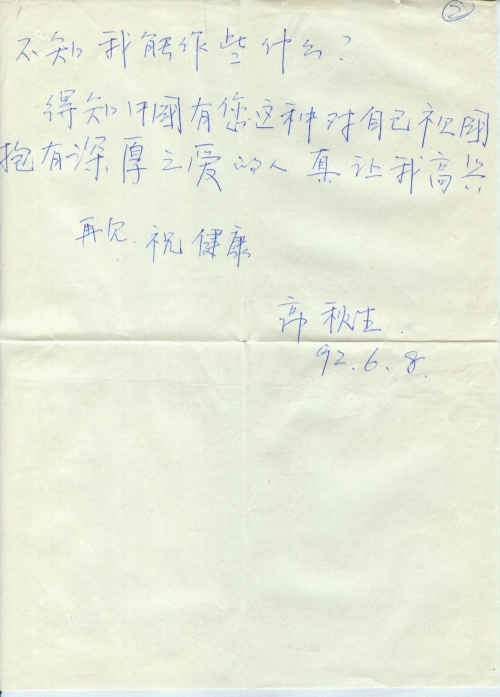 ②
不知我能作些什么？
得知中國有您这种对自己祖國
抱有深厚之爱的人真让我高兴
再见. 祝健康
秋生.
92.6.8.